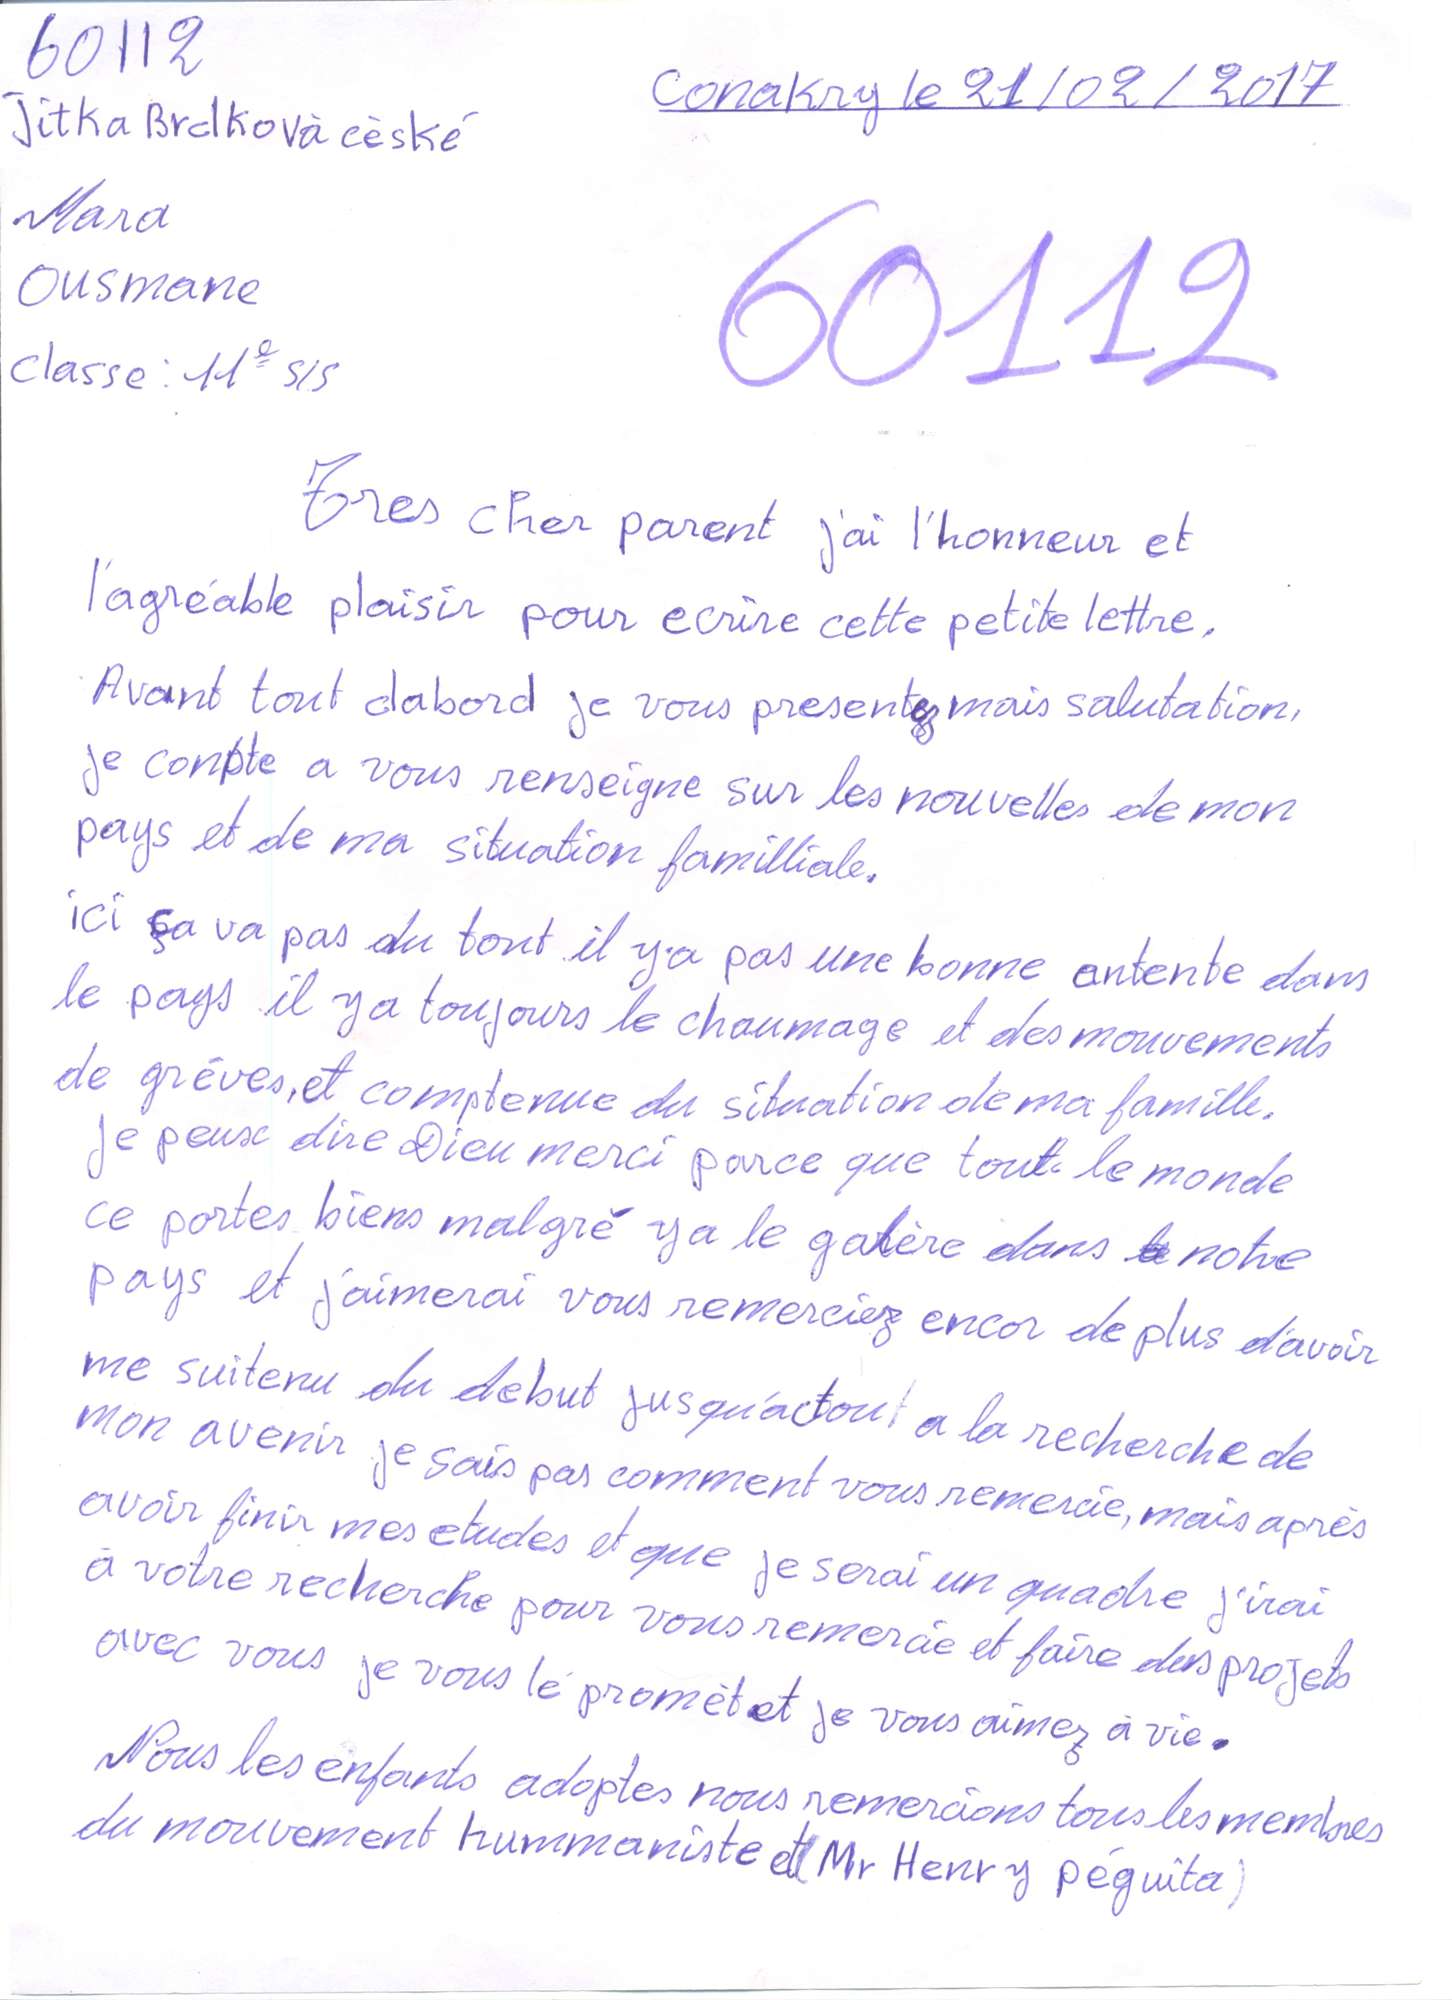 60112
Conakry le 21/02/2017
Jitka Brdkovà cèské
Mara
Ousmane
60112
classe: 11e S/S
Tres cher parent j'ai l'honneur et
l'agréable plaisir pour ecrire cette petite lettre.
Avant tout dabord je vous presentez mais salutation,
je conpte a vous renseigne sur les nouvelles de mon
pays et de ma situation familliale.
ici ça va pas du tout il y'a pas une bonne entente dans
le pays il ya toujours le chaumage et des mouvements
de grèves, et comptenue du situation de ma famille.
je peux dire Dieu merci parce que tout le monde
ce portes biens malgré ya le galère dans notre
pays et j'aimerai vous remerciez encor de plus d'avoir
me suitenu du debut jusqu'actout a la recherche de
mon avenir je sais pas comment vous remercie, mais après
avoir finir mes etudes et que je serai un quadre j'irai
à votre recherche pour vous remercie et faire des projets
avec vous je vous lé promèt et je vous aimez à vie.
Nous les enfants adoptes nous remercions tous les membres
du mouvement hummaniste et (Mr Henry péguita)